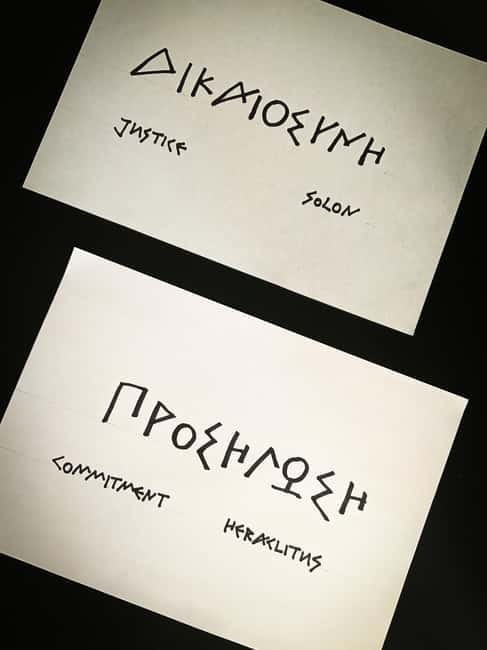 ΔΙΚΑΙΟΣΥΝΗ
JUSTICE
SOLON
ΠΡΟΣΗΛΩΣΗ
COMMITMENT
HERACLITUS